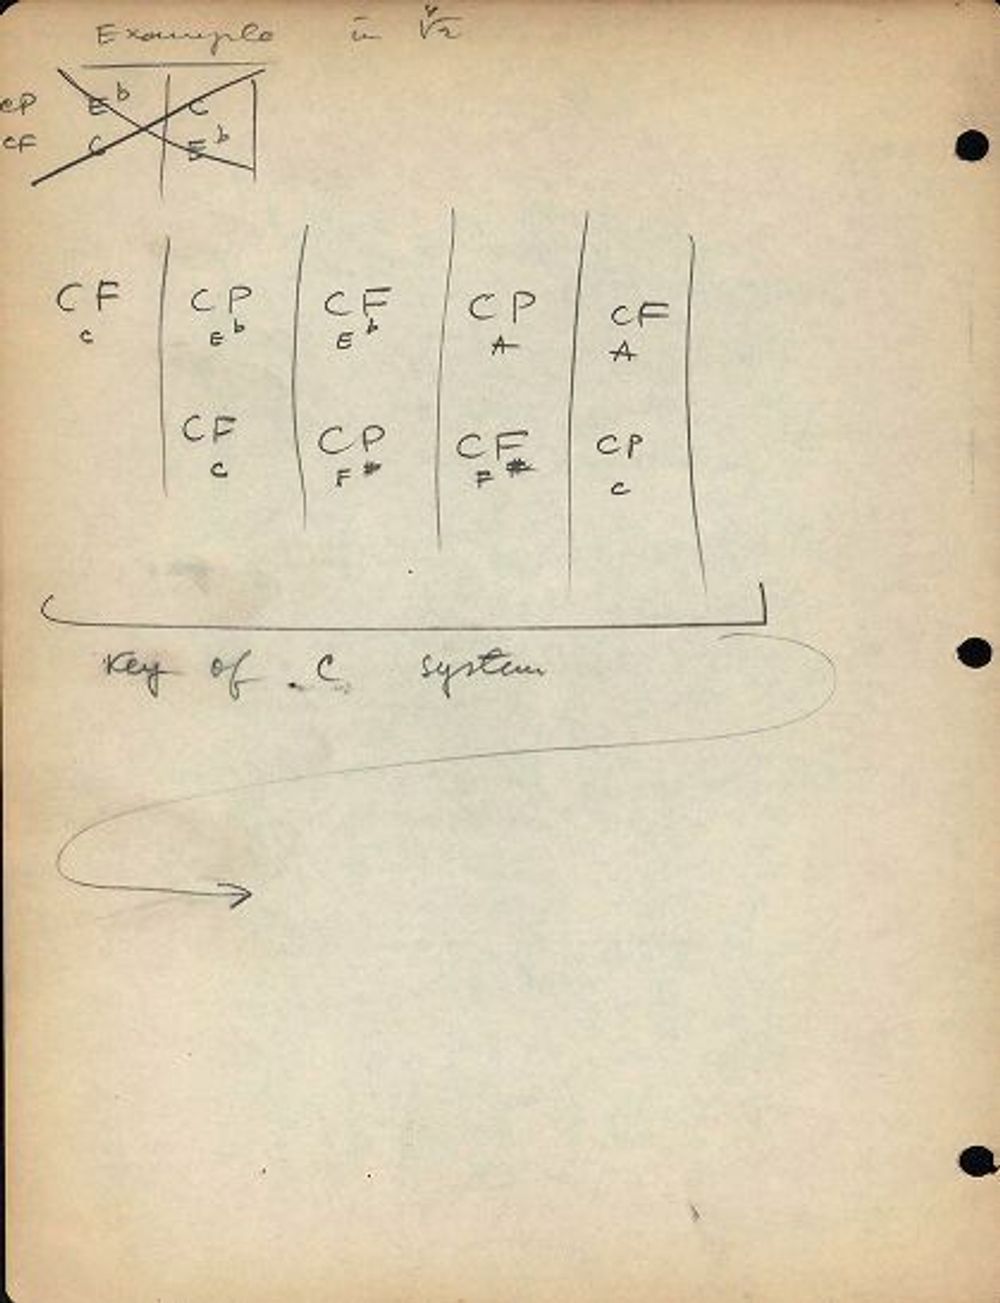 Example in ∜2
CP E♭ C
CF C E♭
CF CP CF CP CF
C E♭ E♭ A A
CF CP CF CP
C F# F# C
Key of C system